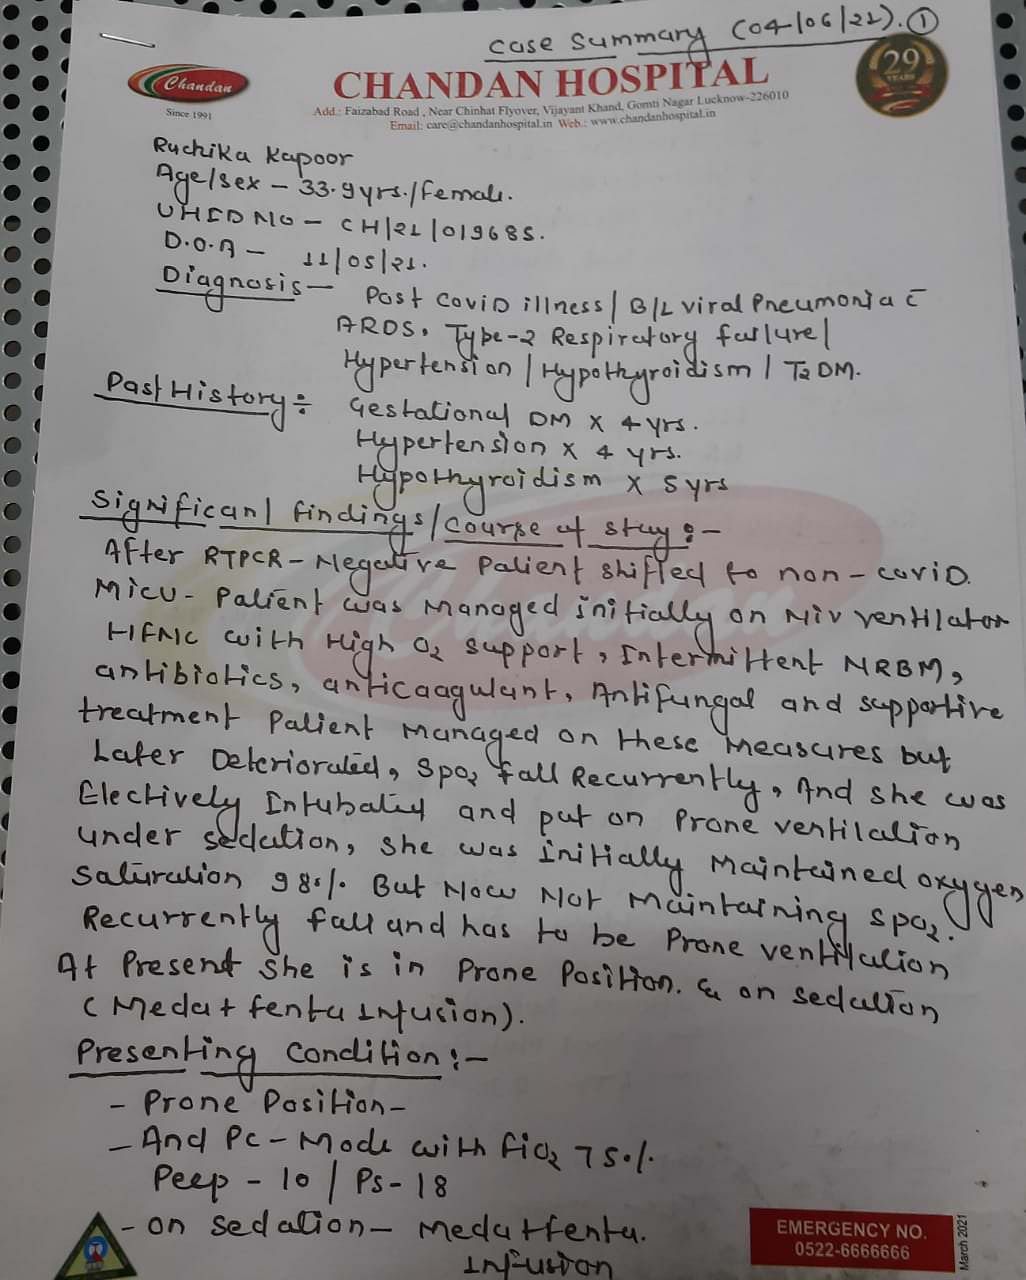 Case Summary (04/06/21). ①
Chandan
Since 1991
CHANDAN HOSPITAL
29
YEARS
Add.: Faizabad Road, Near Chinhat Flyover, Vijayant Khand, Gomti Nagar Lucknow-226010
Email: care@chandanhospital.in Web.: www.chandanhospital.in
Ruchika Kapoor
Age/Sex - 33.9yrs./Female.
UHID NO - CH/21/019685.
D.O.A - 11/05/21.
Diagnosis - Post Covid illness / B/L viral Pneumonia c̄
ARDS. Type-2 Respiratory failure/
Hypertension / Hypothyroidism / T2DM.
Past History:- Gestational DM x 4 yrs.
Hypertension x 4 yrs.
Hypothyroidism x 5 yrs
Significant findings/Course of stay:-
After RTPCR-Negative Patient shifted to non-covid.
MICU- Patient was Managed initially on NIV ventilator
HFNC with High O2 support, Intermittent NRBM,
antibiotics, anticaagulant, Antifungal and supportive
treatment Patient Managed on these measures but
Later Deteriorated, SpO2 fall Recurrently, And she was
Electively Intubated and put on Prone ventilation
under sedation, she was initially Maintained oxygen
Saturation 98%. But Now Not Maintaining SpO2.
Recurrently fall and has to be Prone ventilation
At Present she is in Prone Position. & on sedation
(Meda+fenta Infusion).
Presenting Condition:-
- Prone Position-
- And PC-Mode with fiO2 75%.
Peep - 10 / PS-18
- on sedation - Meda+fenta.
Infusion
EMERGENCY NO.
0522-6666666
March 2021